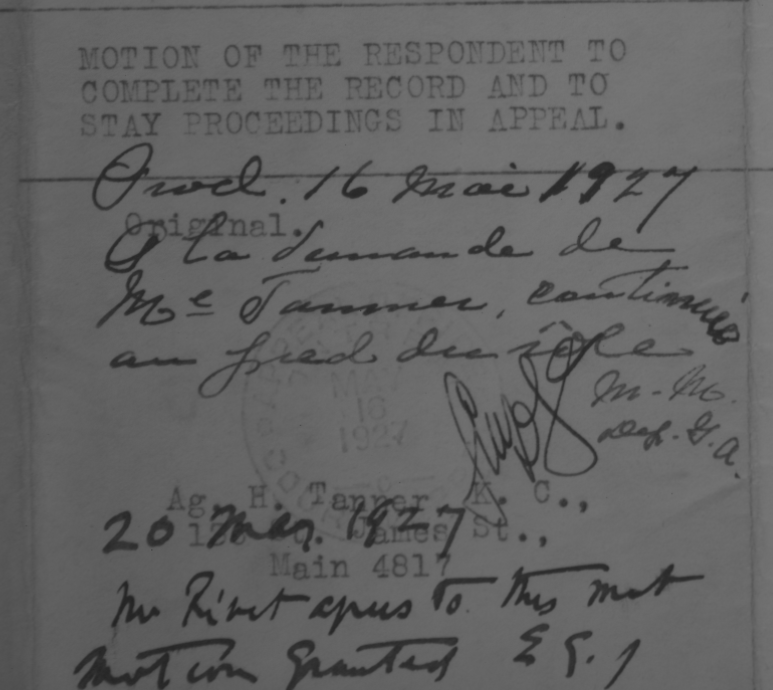 MOTION OF THE RESPONDENT TO
COMPLETE THE RECORD AND TO
STAY PROCEEDINGS IN APPEAL.
Prod. 16 Mai 1927
Original.
A la demande de
Me Tanner, continuée
au pied du rôle
M.
Dep. G. A.
MAY
16
1927
Ag. H. Tanner K. C.,
James St.,
20 May 1927
Main 4817
Mr Rivet agrees to this mot
Motion granted E G. J